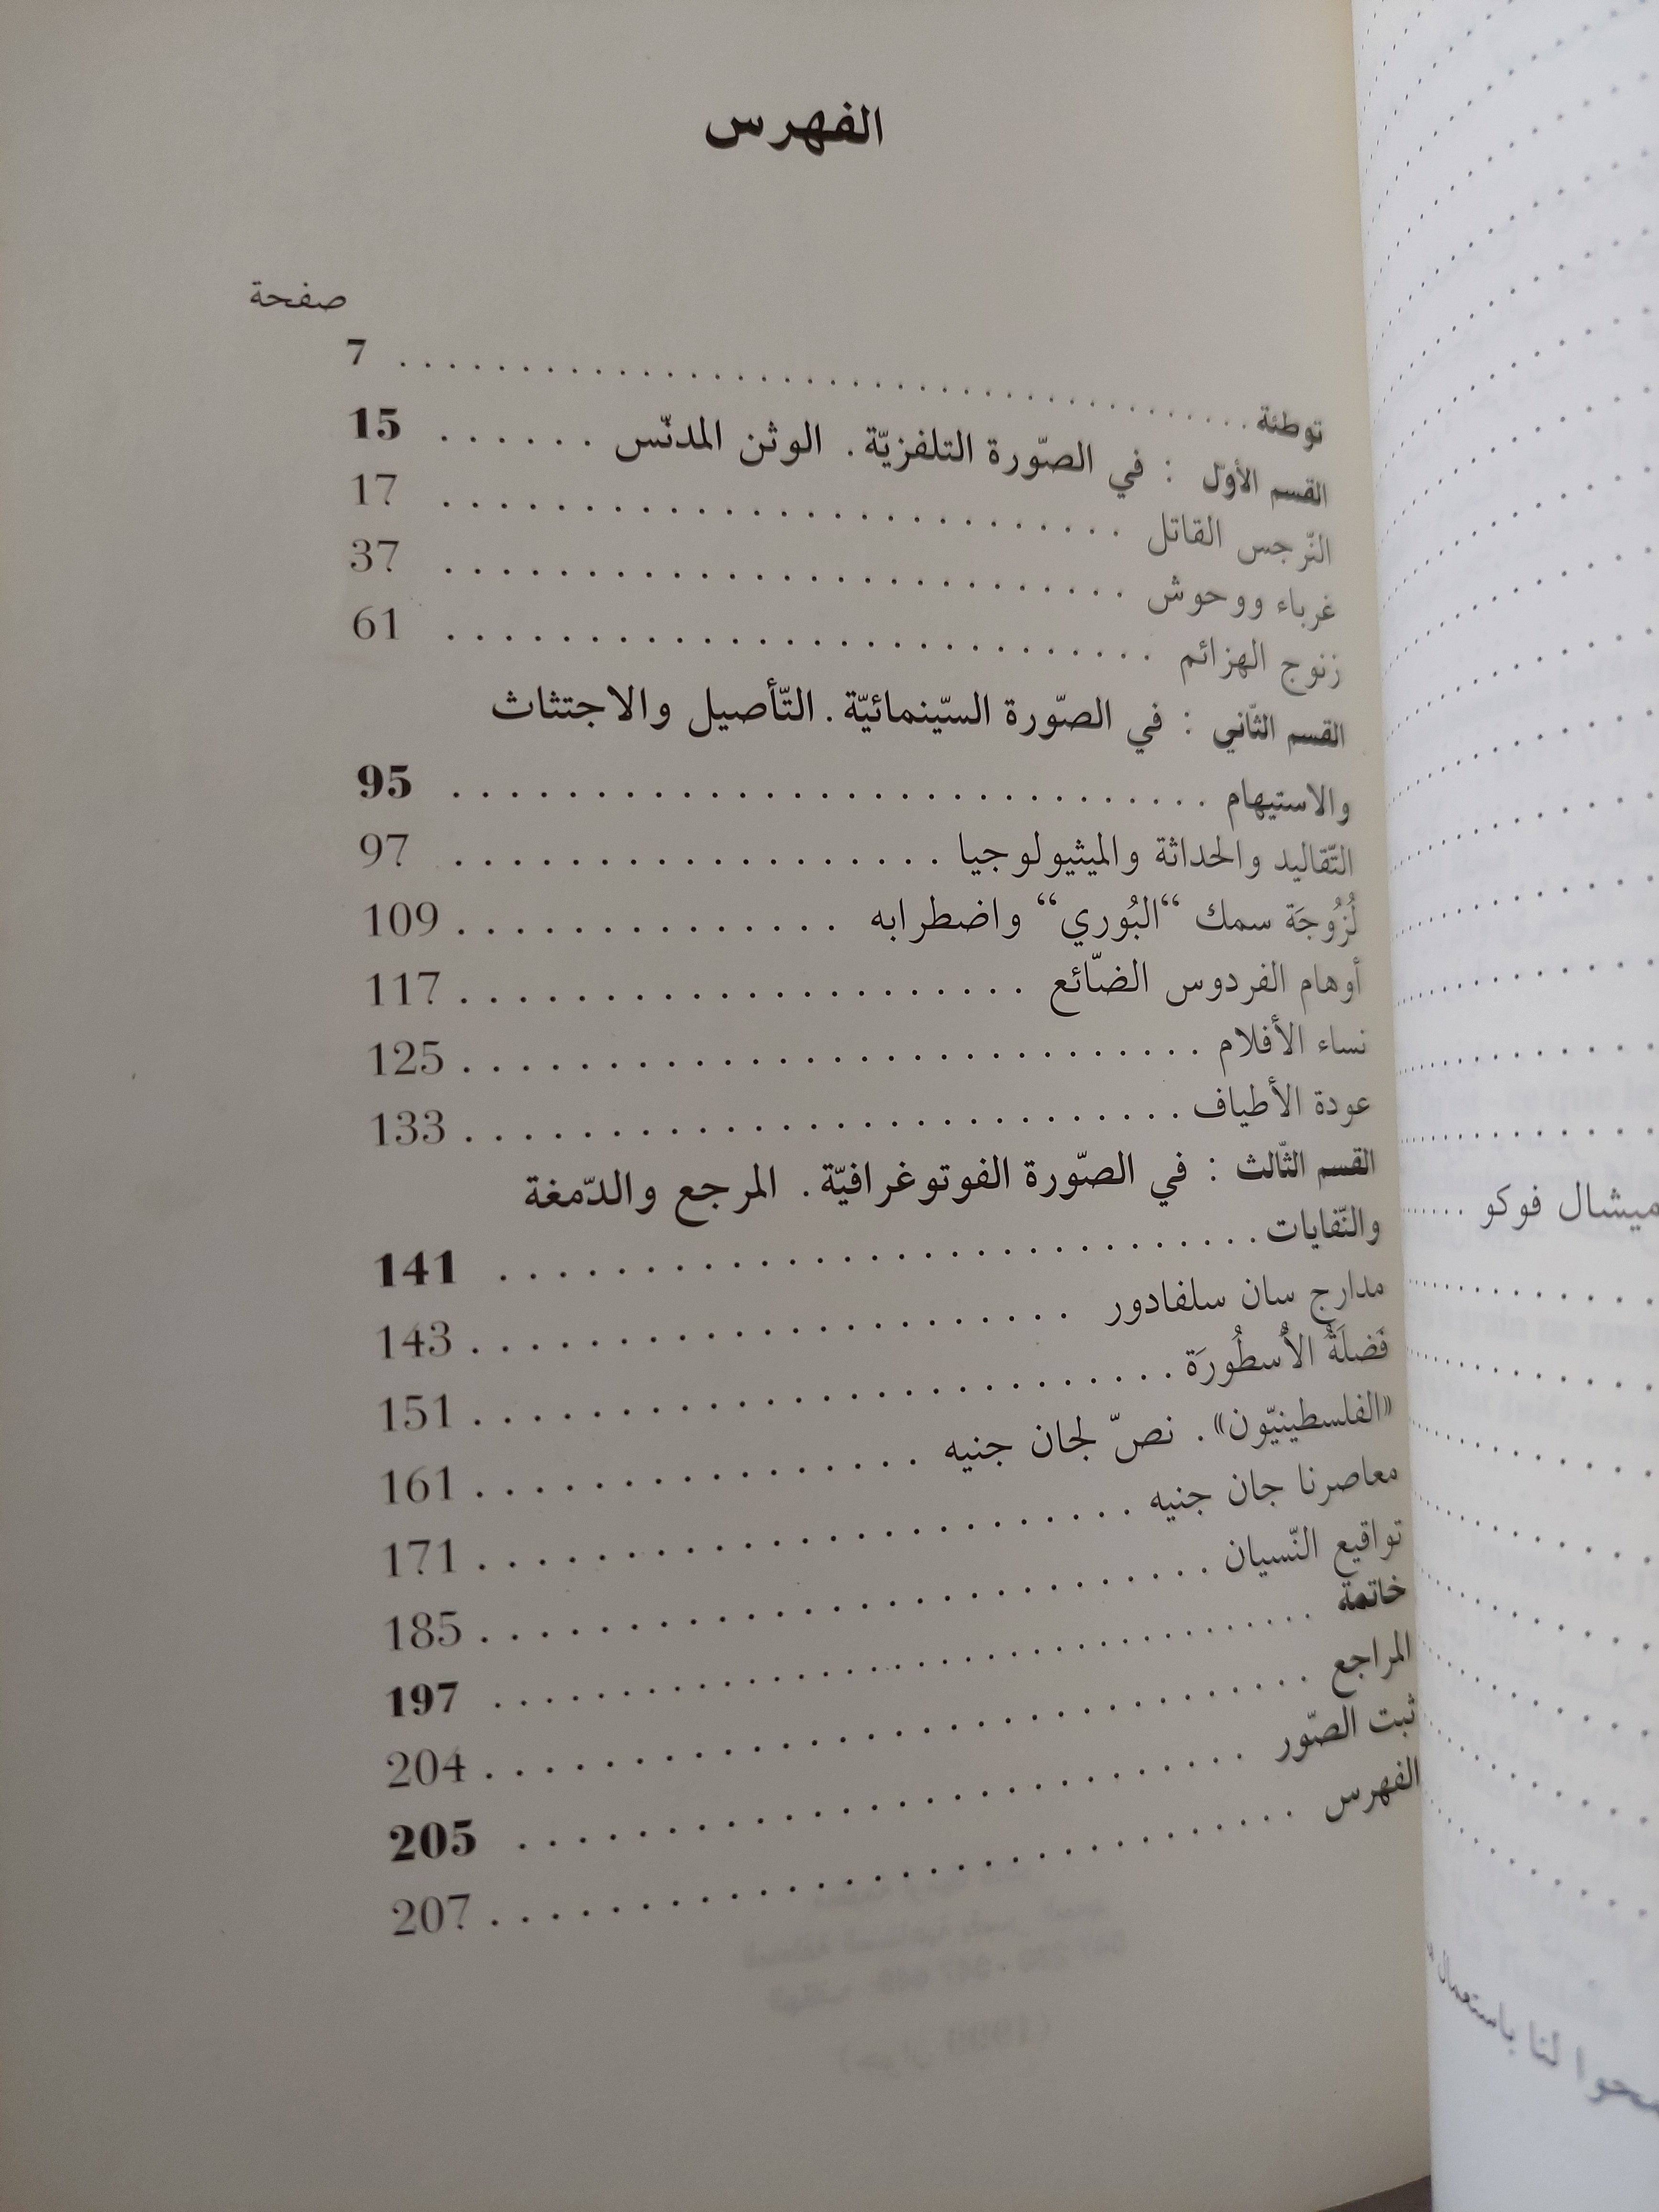 الفهرس
صفحة
توطئة . . . . . . . . . . . . . . . . . . . . 7
القسم الأوّل : في الصّورة التلفزيّة. الوثن المدنّس . . . . . . 15
النّرجس القاتل . . . . . . . . . . . . . . . . . . . . 17
غرباء ووحوش . . . . . . . . . . . . . . . . . . . . 37
زنوج الهزائم . . . . . . . . . . . . . . . . . . . . 61
القسم الثّاني : في الصّورة السّينمائيّة. التّأصيل والاجتثاث
والاستيهام . . . . . . . . . . . . . . . . . . . . 95
التّقاليد والحداثة والميثيولوجيا . . . . . . . . . . . . . . . . . 97
لُزُوجَة سمك “البُوري“ واضطرابه . . . . . . . . . . . . . . 109
أوهام الفردوس الضّائع . . . . . . . . . . . . . . . . . . . . 117
نساء الأفلام . . . . . . . . . . . . . . . . . . . . 125
عودة الأطياف . . . . . . . . . . . . . . . . . . . . 133
القسم الثّالث : في الصّورة الفوتوغرافيّة. المرجع والدّمغة
والنّفايات . . . . . . . . . . . . . . . . . . . . 141
مدارج سان سلفادور . . . . . . . . . . . . . . . . . . . . 143
فَضلَةُ الأُسطُورَة . . . . . . . . . . . . . . . . . . . . 151
«الفلسطينيّون». نصّ لجان جنيه . . . . . . . . . . . . . . . . 161
معاصرنا جان جنيه . . . . . . . . . . . . . . . . . . . . 171
تواقيع النّسيان . . . . . . . . . . . . . . . . . . . . 185
خاتمة . . . . . . . . . . . . . . . . . . . . 197
المراجع . . . . . . . . . . . . . . . . . . . . 204
ثبت الصّور . . . . . . . . . . . . . . . . . . . . 205
الفهرس . . . . . . . . . . . . . . . . . . . . 207
ميشال فوكو